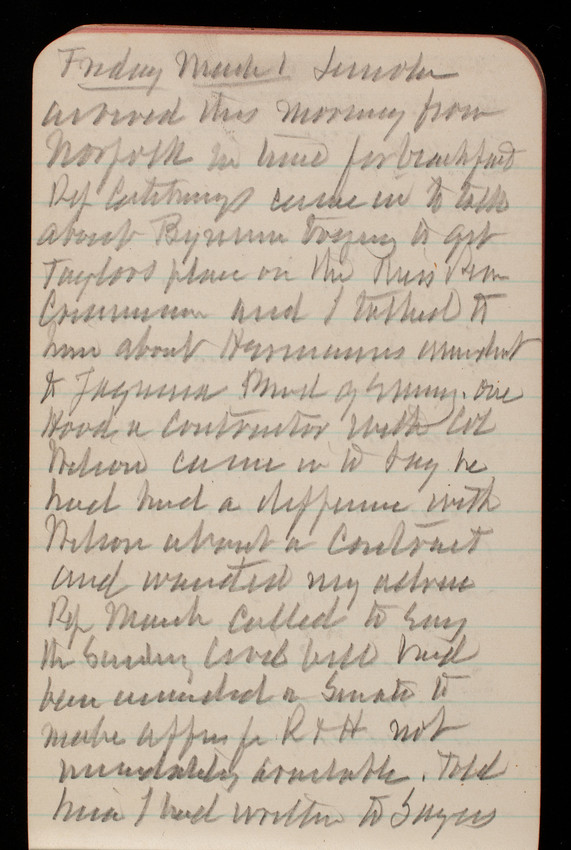 Friday March 1 Lincoln
arrived this morning from
Norfolk in time for breakfast
Rep Catchings came in to talk
about Bynum trying to get
Taylors place on the Miss River
Commission and I talked to
him about Hermanns amendment
to Yaquina Board of Engrs. One
Hood a contractor with Col
Wilson came in to say he
had had a difference with
Wilson about a contract
and wanted my advice
Rep called to say
the Sundry Civil bill had
been amended in Senate to
make apprns for R & H not
immediately available. Told
him I had written to Sayers